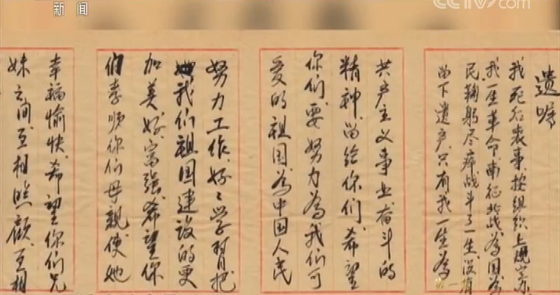 新闻
CCTV.com
遗嘱
我死后丧事,按组织上规定
我一生革命,南征北战,為国為
民鞠躬尽瘁战斗了一生,没有
留下遗产,只有我一生為
共产主义事业奋斗的
精神,留给你们,希望
你们要努力為我们可
爱的祖国為中国人民
努力工作,好々学习,把
我们祖国建设的更
加美好富强,希望你
们孝顺你们母亲,使她
幸福愉快,希望你们兄
妹之间互相照顾,互相